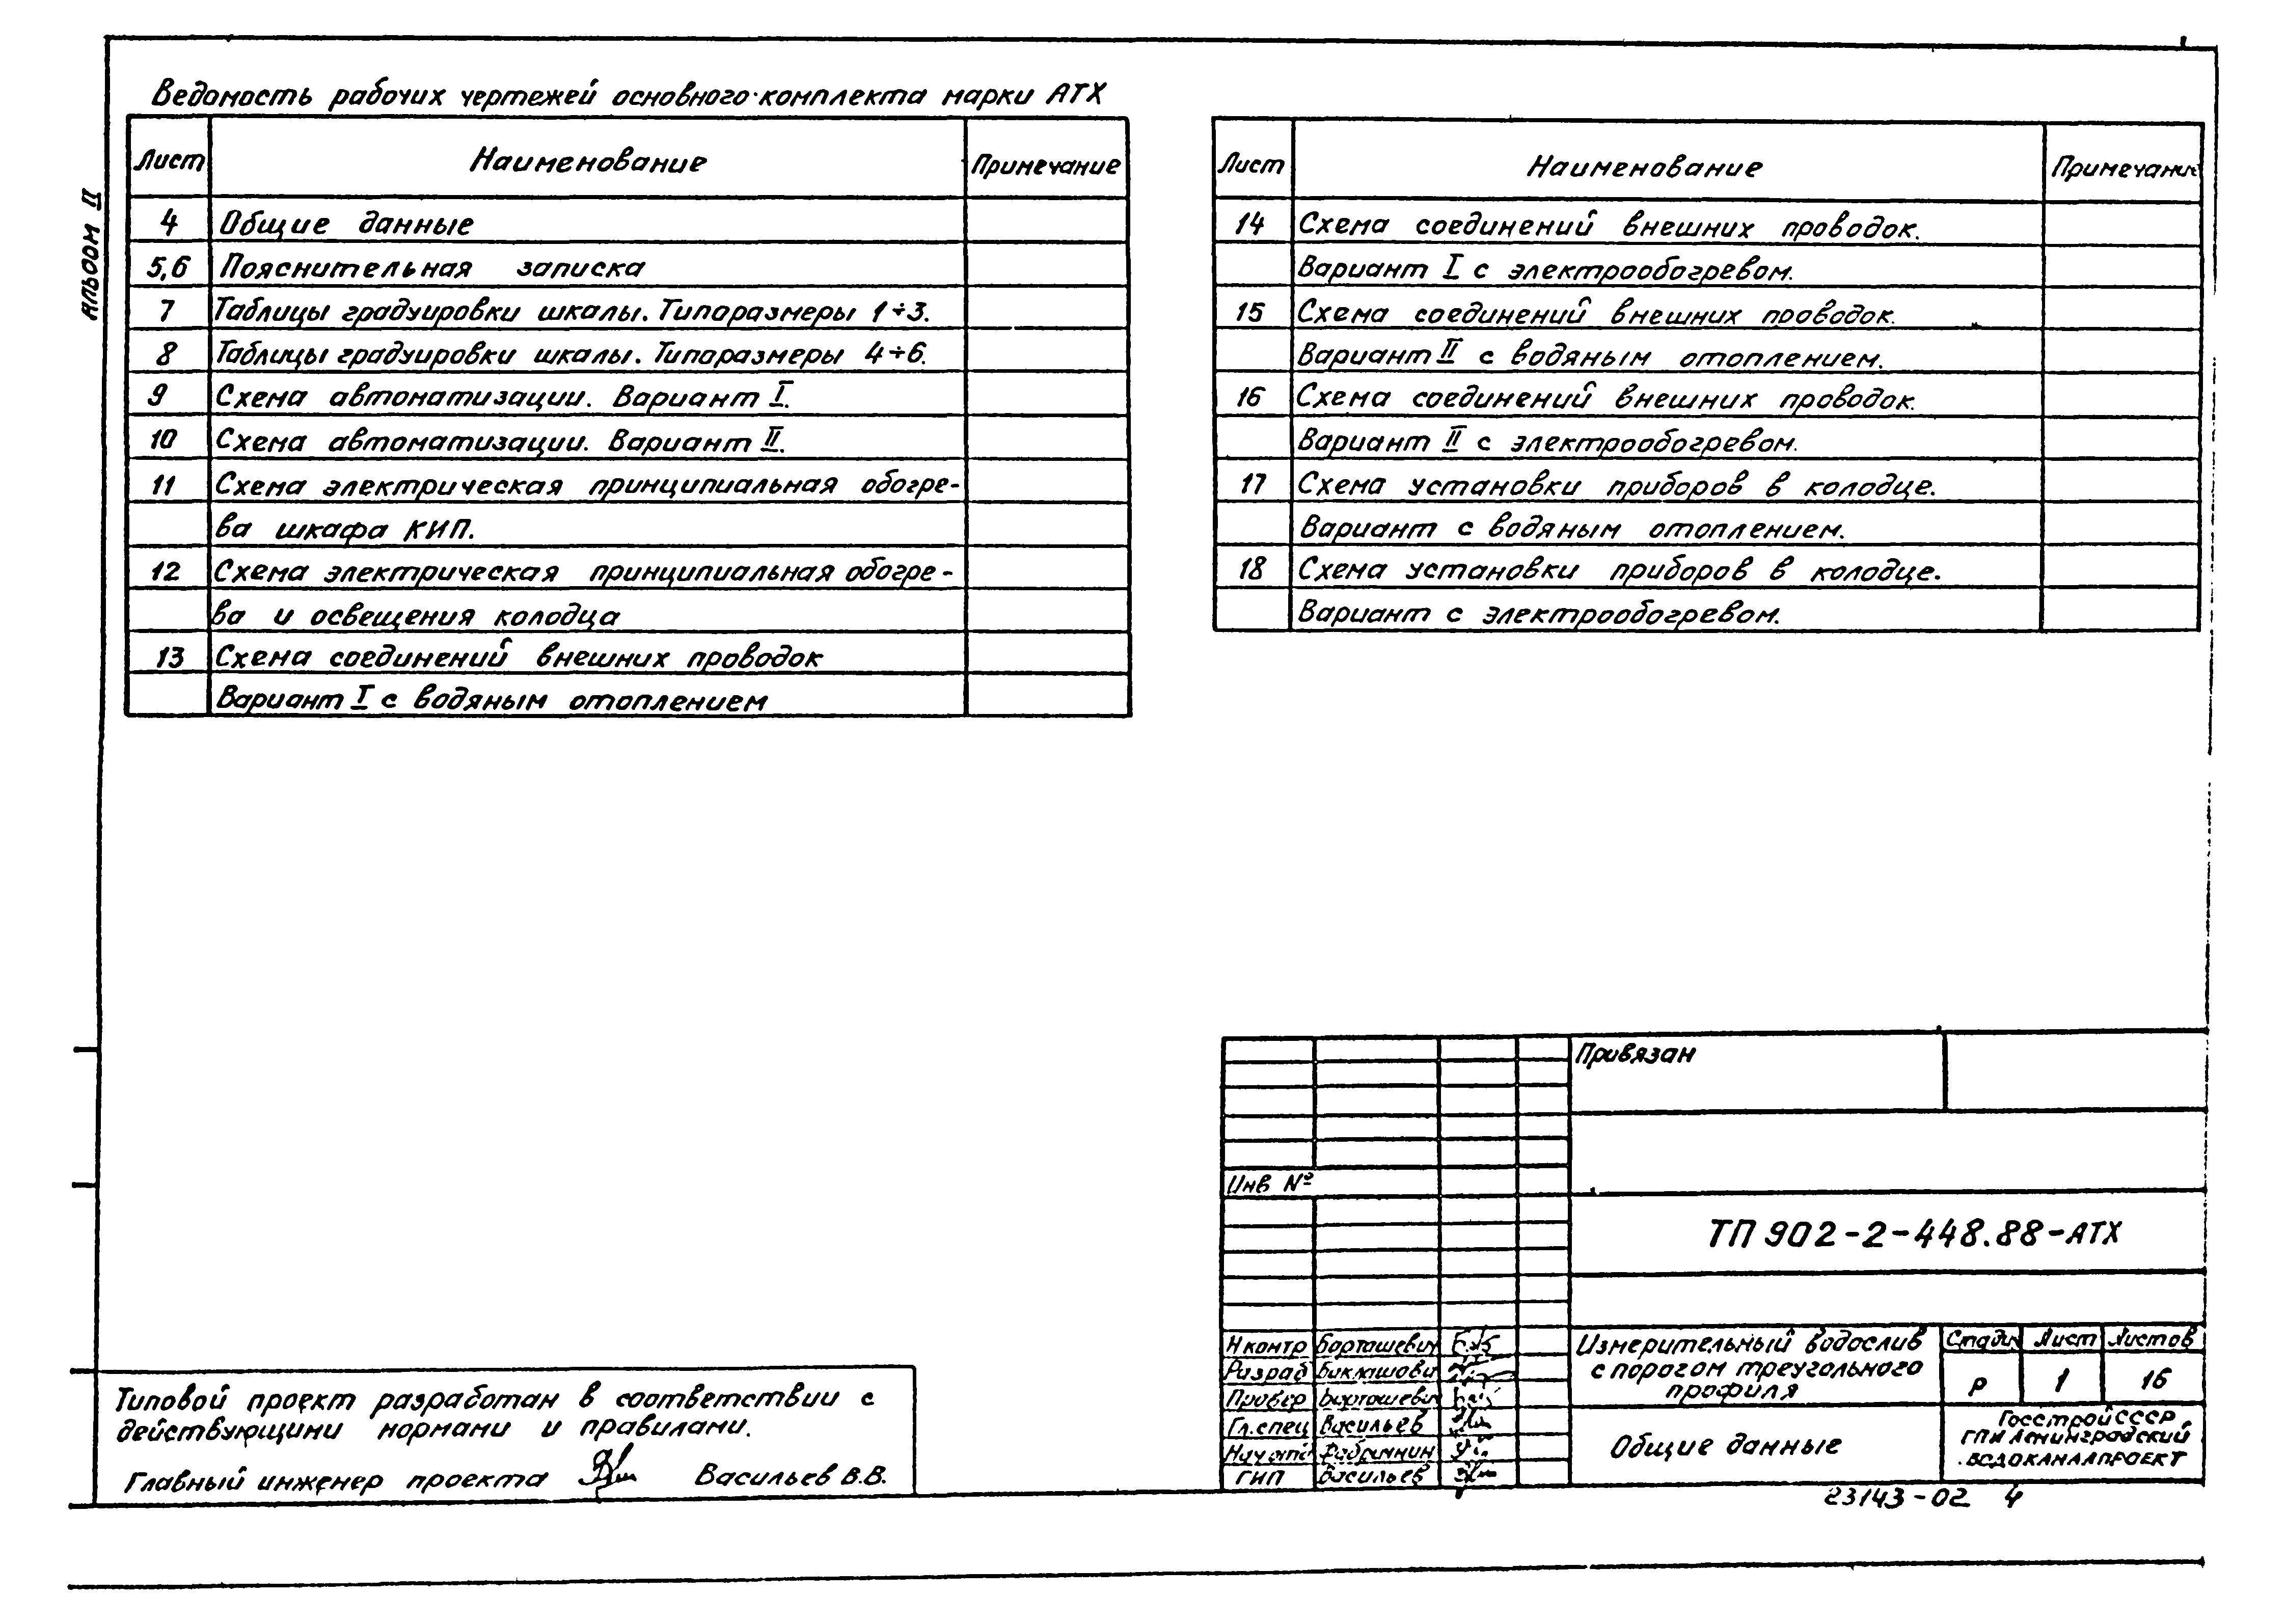 Альбом II
Ведомость рабочих чертежей основного комплекта марки АТХ
Лист Наименование Примечание
4 Общие данные
5,6 Пояснительная записка
7 Таблицы градуировки шкалы. Типоразмеры 1÷3.
8 Таблицы градуировки шкалы. Типоразмеры 4÷6.
9 Схема автоматизации. Вариант I.
10 Схема автоматизации. Вариант II.
11 Схема электрическая принципиальная обогре-
ва шкафа КИП.
12 Схема электрическая принципиальная обогре-
ва и освещения колодца
13 Схема соединений внешних проводок
Вариант I с водяным отоплением
Лист Наименование Примечание
14 Схема соединений внешних проводок.
Вариант I с электрообогревом.
15 Схема соединений внешних проводок.
Вариант II с водяным отоплением.
16 Схема соединений внешних проводок.
Вариант II с электрообогревом.
17 Схема установки приборов в колодце.
Вариант с водяным отоплением.
18 Схема установки приборов в колодце.
Вариант с электрообогревом.
Типовой проект разработан в соответствии с
действующими нормами и правилами.
Главный инженер проекта Васильев В.В.
Привязан
Инв №
ТП 902-2-448.88-АТХ
Н контр Барташевич
Разраб
Провер Барташевич
Гл.спец Васильев
Нач отд
ГИП Васильев
Измерительный водослив
с порогом треугольного
профиля
Стадия Лист Листов
Р 1 16
Общие данные
Госстрой СССР
ГПИ Ленинградский
ВОДОКАНАЛПРОЕКТ
23143-02 4